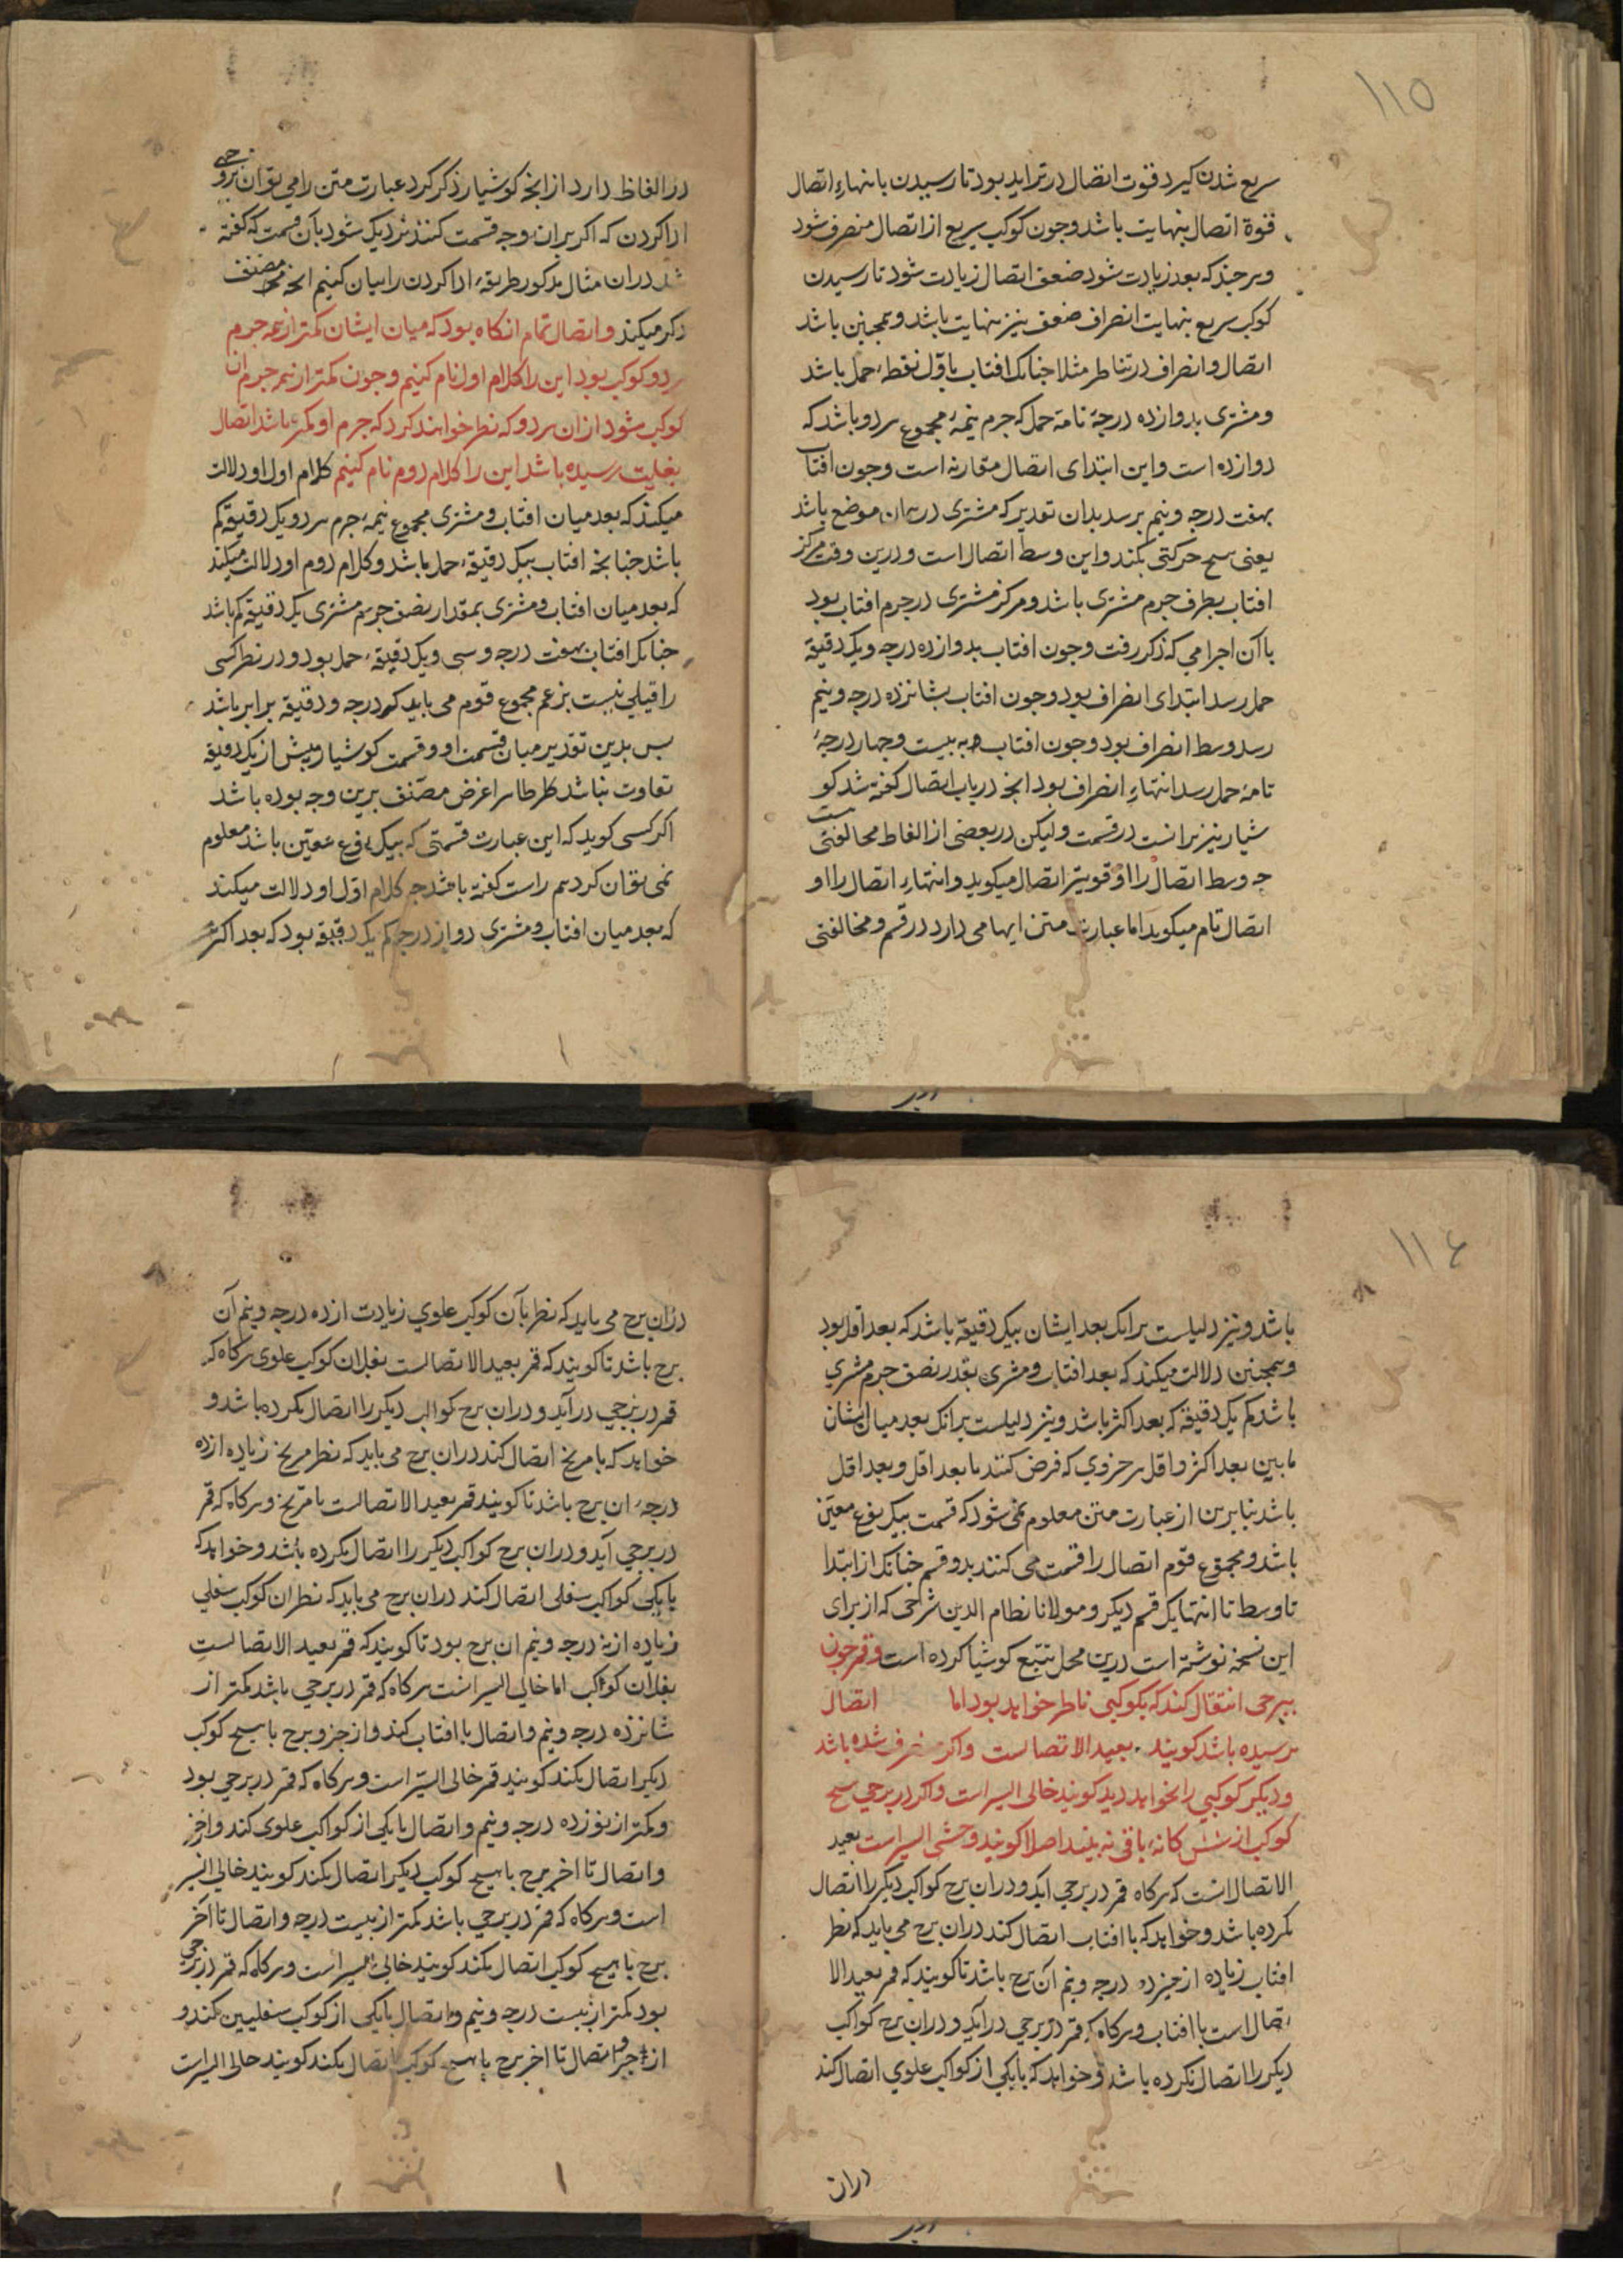 ١١٥
سریع شدن کیرد قوت اتصال در تزاید بود تا رسیدن بانتهاء اتصال
قوة اتصال بنهایت باشد وجون کوکب سریع از اتصال منصرف شود
وهرجند که بعد زیادت شود ضعف اتصال زیادت شود تا رسیدن
کوکب سریع بنهایت انصراف ضعف نیز بنهایت باشد وهمجنین باشد
اتصال وانصراف در تناظر مثلا جنانک افتاب باول نقطهٔ حمل باشد
ومشتری بدوازده درجهٔ تامه حمل که جرم نیمهٔ مجموع هردو باشد که
دوازده است واین ابتدای اتصال مقارنه است وجون افتاب
بهفت درجه ونیم برسد بدان تقدیر که مشتری در همان موضع باشد
یعنی هیح حرکتی نکند واین وسط اتصال است ودرین وقت مرکز
افتاب بطرف جرم مشتری باشد ومرکز مشتری در جرم افتاب بود
باآن اجرامی که ذکر رفت وجون افتاب بدوازده درجه ویک دقیقهٔ
حمل رسد ابتدای انصراف بود وجون افتاب بشانزده درجه ونیم
رسد وسط انصراف بود وجون افتاب به بیست وجهار درجهٔ
تامهٔ حمل رسد انتهاء انصراف بود انجه در باب اتصال کفته شد کو
شیار نیز برانست در قسمت ولیکن در بعضی از الفاظ مخالفتیست
جه وسط اتصال را او قویتر اتصال میکوید وانتهاء اتصال را او
اتصال تام میکوید اما عبارت متن ایهامی دارد در قسم ومخالفتی
در الفاظ دارد ازانجه کوشیار ذکر کرد عبارت متن را می توان بروجهی
ادا کردن که اکر بران وجه قسمت کنند نزدیک شود بآن قسمت که کفته
شد دران مثال مذکور طریقهٔ ادا کردن را بیان کنیم انجه مصنف
ذکر میکند واتصال تمام انکاه بود که میان ایشان کمتر از نیمه جرم
هردو کوکب بود این را کلام اول نام کنیم وجون کمتر از نیمه جرم ان
کوکب شود ازان هردو که نظر خواهند کرد که جرم او کمتر باشد اتصال
بغایت رسیده باشد این را کلام دوم نام کنیم کلام اول او دلالت
میکند که بعد میان افتاب ومشتری مجموع نیمهٔ جرم هردو یک دقیقه کم
باشد جنانجه افتاب بیک دقیقهٔ حمل باشد وکلام دوم او دلالت میکند
که بعد میان افتاب ومشتری بمقدار نصف جرم مشتری یک دقیقه کم باشد
جنانک افتاب بهفت درجه وسی ویک دقیقهٔ حمل بود ودر نظر کسی
را قیلی نیست بزعم مجموع قوم می باید که درجه ودقیقه برابر باشد
بس بدین تقدیر میان قسمت او وقسمت کوشیار بیش از یک دقیقه
تفاوت نباشد ظاهرا غرض مصنف برین وجه بوده باشد
اکر کسی کوید که این عبارت قسمتی که بیک نوع معین باشد معلوم
نمی توان کرد هم راست کفته باشد جه کلام اول او دلالت میکند
که بعد میان افتاب ومشتری دوازده درجه کم یک دقیقه بود که بعد اکثر
١١٤
باشد ونیز دلیلست برانک بعد ایشان بیک دقیقه باشد که بعد اقل بود
وهمجنین دلالت میکند که بعد افتاب ومشتری بقدر نصف جرم مشتری
باشد کم یک دقیقه که بعد اکثر باشد ونیز دلیلست برانک بعد میان ایشان
مابین بعد اکثر واقل هر جزوی که فرض کنند تا بعد اقل وبعد اقل
باشد بنابرین از عبارت متن معلوم نمی شود که قسمت بیک نوع معین
باشد ومجموع قوم اتصال را قسمت می کنند بدو قسم جنانک از ابتدا
تا وسط تا انتها یک قسم دیکر ومولانا نظام الدین شرحی که از برای
این نسخه نوشته است درین محل تتبع کوشیا کرده است وقمر جون
ببرجی انتقال کند که بکوکبی ناظر خواهد بود اما اتصال
نرسیده باشد کویند بعید الاتصالست واکر منصرف شده باشد
ودیکر کوکبی را نخواهد دید کویند خالی السیر است واکر در برجی هیح
کوکب از شش کانهٔ باقی نه بیند اصلا کویند وحشی السیر است بعید
الاتصال انست که هرکاه قمر در برجی اید ودران برج کواکب دیکر را اتصال
نکرده باشد وخواهد که با افتاب اتصال کند دران برج می باید که نظر
افتاب زیاده از درجه ونیم آن برج باشد تا کویند که قمر بعید الا
تصال است با افتاب وهرکاه که قمر در برجی درآید ودران برج کواکب
دیکر را اتصال نکرده باشد وخواهد که با یکی از کواکب علوی اتصال کند
دران
دران برج می باید که نظر بآن کوکب علوی زیادت از ده درجه ونیم آن
برج باشد تا کویند که قمر بعید الاتصالست بفلان کوکب علوی هرکاه که
قمر در برجی درآید ودران برج کواکب دیکر را اتصال نکرده باشد و
خواهد که با مریخ اتصال کند دران برج می باید که نظر مریخ زیاده از ده
درجهٔ ان برج باشد تا کویند قمر بعید الاتصالست با مریخ وهرکاه که قمر
در برجی آید ودران برج کواکب دیکر را اتصال نکرده باشد وخواهد که
با یکی کواکب سفلی اتصال کند دران برج می باید که نظر ان کوکب سفلی
زیاده از نه درجه ونیم ان برج بود تا کویند که قمر بعید الاتصالست
بفلان کوکب اما خالی السیر انست هرکاه که قمر در برجی باشد کمتر از
شانزده درجه ونیم واتصال با افتاب کند واز جزو برج با هیح کوکب
دیکر اتصال نکند کویند قمر خالی السیر است وهرکاه که قمر در برجی بود
وکمتر از نوزده درجه ونیم واتصال با یکی از کواکب علوی کند واخر
واتصال تا اخر برج با هیح کوکب دیکر اتصال نکند کویند خالی السیر
است وهرکاه که قمر در برجی باشد کمتر از بیست درجه واتصال تا آخر
برج با هیح کوکب اتصال نکند کویند خالی السیر است وهرکاه که قمر در برجی
بود کمتر از بیست درجه ونیم واتصال با یکی از کوکب سفلیین کند و
از اتصال تا اخر برج با هیح کوکب اتصال نکند کویند خالی السیر است